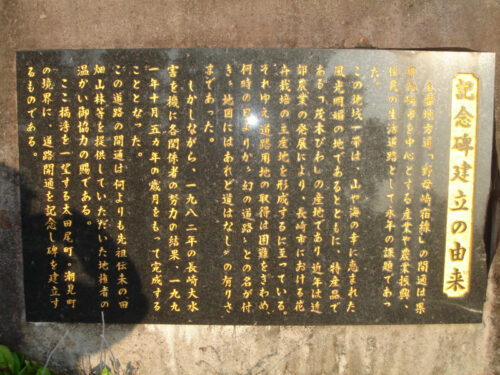 記念碑建立の由来
主要地方道「野母崎宿線」の開通は県
庁長崎市を中心とする産業や農業振興
住民の生活道路として永年の課題であっ
た。
この地域一帯は、山や海の幸に恵まれた
風光明媚の地であるとともに、特産品で
ある「茂木びわ」の産地であり近年は近
郊農業の発展により、長崎市における花
卉栽培の主産地を形成するに至っている。
それゆえ、道路用地の取得は困難をきわめ、
何時の日よりか〝幻の道路〟との名が付
き、地図にはあれど道はなしの有りさ
まであった。
しかしながら、一九八二年の長崎大水
害を機に各関係者の努力の結果、一九九
一年十月五カ年の歳月をもって完成する
こととなった。
この道路の開通は何よりも先祖伝来の田
畑山林等を提供していただいた地権者の
温かい御協力の賜である。
ここ橘湾を一望する太田尾町、潮見町
の境界に、道路開通を記念し碑を建立す
るものである。